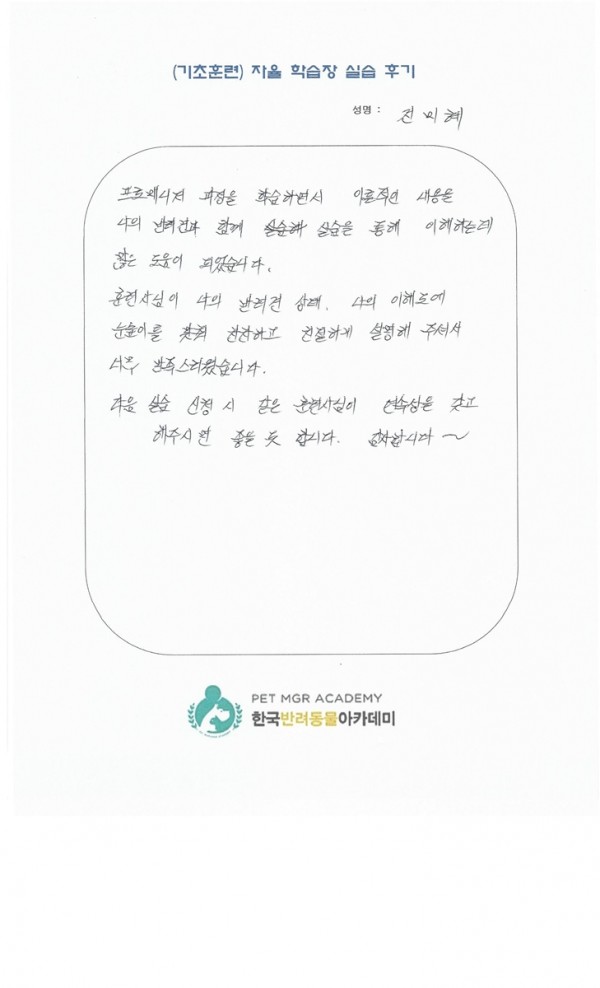 (기초훈련) 자율 학습장 실습 후기
성명 : 전미혜
프로매니저 과정을 학습하면서 이론적인 내용을
나의 반려견과 함께 실습해 실습을 통해 이해하는데
많은 도움이 되었습니다.
훈련사님이 나의 반려견 상태, 나의 이해도에
눈높이를 맞춰 찬찬하고 친절하게 설명해 주셔서
너무 만족스러웠습니다.
다음 실습 신청 시 같은 훈련사님이 연속성을 갖고
해주시면 좋을 듯 합니다. 감사합니다~
PET MGR ACADEMY
한국반려동물아카데미